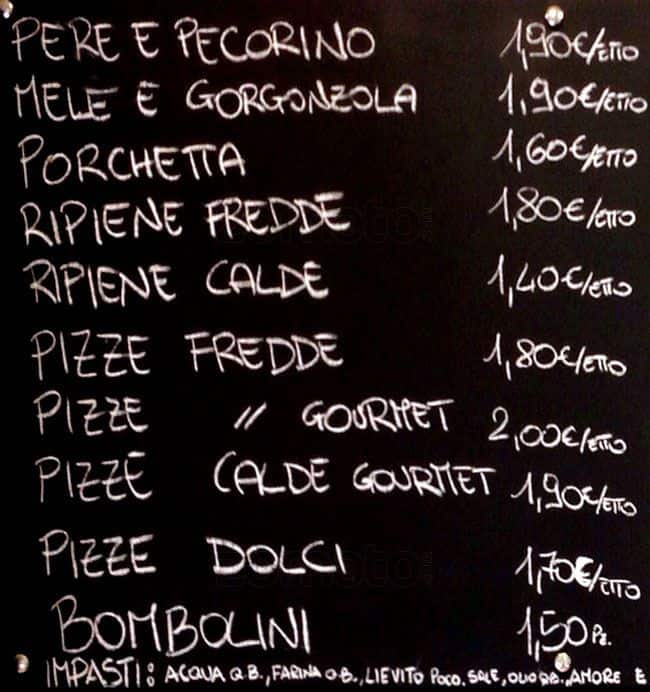 PERE E PECORINO 1,90€/ETTO
MELE E GORGONZOLA 1,90€/ETTO
PORCHETTA 1,60€/ETTO
RIPIENE FREDDE 1,80€/ETTO
RIPIENE CALDE 1,40€/ETTO
PIZZE FREDDE 1,80€/ETTO
PIZZE // GOURMET 2,00€/ETTO
PIZZE CALDE GOURMET 1,90€/ETTO
PIZZE DOLCI 1,70€/ETTO
BOMBOLINI 1,50 Pz.
IMPASTI: ACQUA Q.B., FARINA Q.B., LIEVITO POCO, SALE, OLIO Q.B., AMORE E